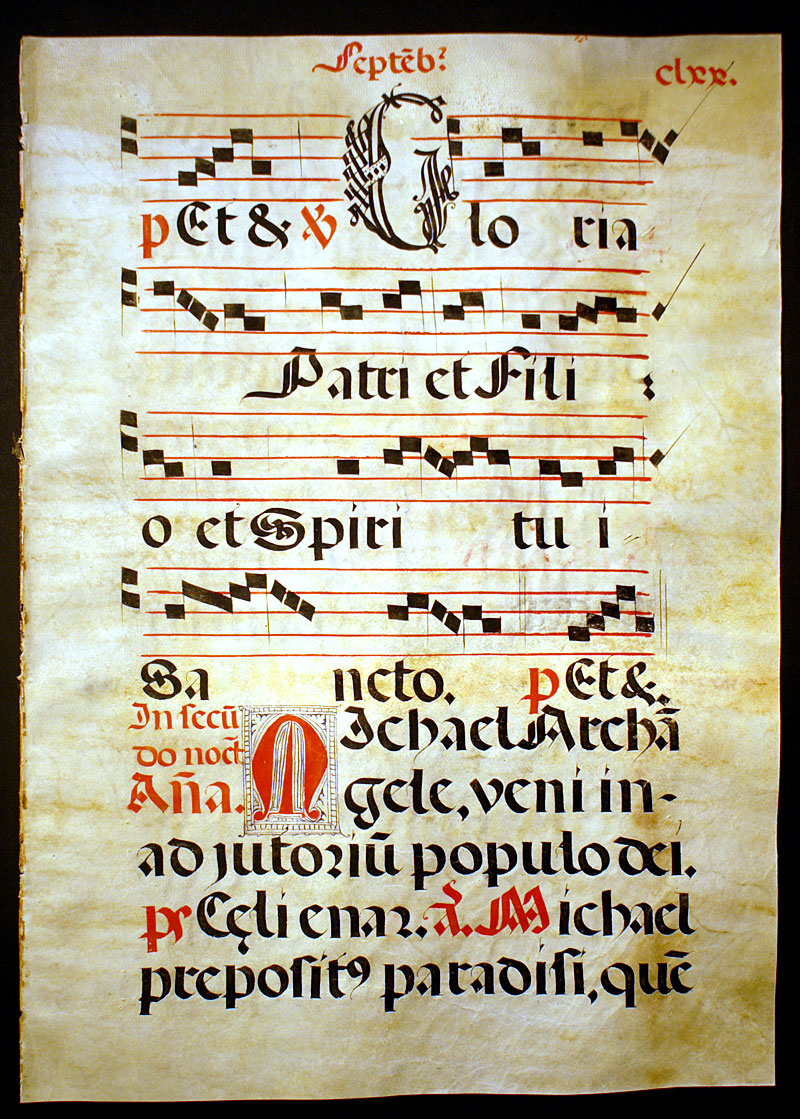 Septēb?
clxx.
p Et & ℣ Glo ria
Patri et Fili
o et Spiri tu i
Sa ncto. p Et &.
In secū
do noct̄
Añã.
Michael Archā
gele, veni in-
adjutoriū populo dei.
ps Cęli enar. ā. Michael
preposit⁹ paradisi, quē